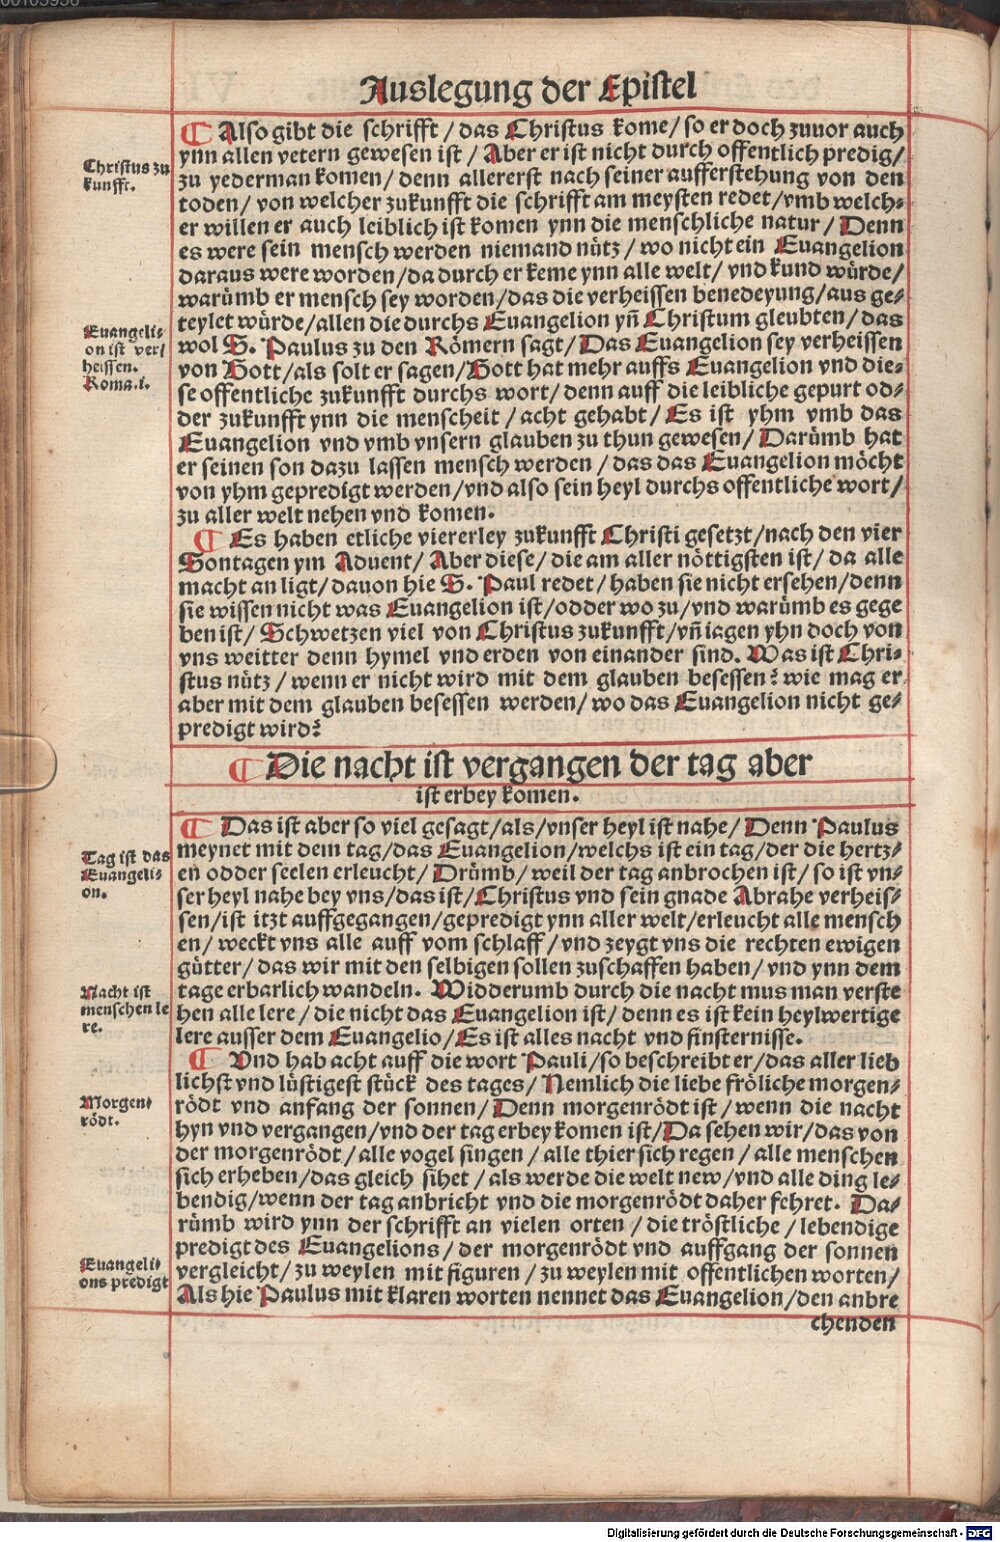 Auslegung der Epistel
¶ Also gibt die schrifft / das Christus kome / so er doch zuuor auch
ynn allen vetern gewesen ist / Aber er ist nicht durch offentlich predig /
Christus zu
kunfft.
zu yederman komen / denn allererst nach seiner aufferstehung von den
toden / von welcher zukunfft die schrifft am meysten redet / vmb welch⸗
er willen er auch leiblich ist komen ynn die menschliche natur / Denn
es were sein mensch werden niemand nütz / wo nicht ein Euangelion
daraus were worden / da durch er keme ynn alle welt / vnd kund würde /
warümb er mensch sey worden / das die verheissen benedeyung / aus ge⸗
teylet würde / allen die durchs Euangelion yn̄ Christum gleubten / das
Euangeli⸗
on ist ver⸗
heissen.
Roma. i.
wol S. Paulus zu den Römern sagt / Das Euangelion sey verheissen
von Gott / als solt er sagen / Gott hat mehr auffs Euangelion vnd die⸗
se offentliche zukunfft durchs wort / denn auff die leibliche gepurt od⸗
der zukunfft ynn die menscheit / acht gehabt / Es ist yhm vmb das
Euangelion vnd vmb vnsern glauben zu thun gewesen / Darümb hat
er seinen son dazu lassen mensch werden / das das Euangelion möcht
von yhm gepredigt werden / vnd also sein heyl durchs offentliche wort /
zu aller welt nehen vnd komen.
¶ Es haben etliche viererley zukunfft Christi gesetzt / nach den vier
Sontagen ym Aduent / Aber diese / die am aller nöttigsten ist / da alle
macht an ligt / dauon hie S. Paul redet / haben sie nicht ersehen / denn
sie wissen nicht was Euangelion ist / odder wo zu / vnd warümb es gege
ben ist / Schwetzen viel von Christus zukunfft / vn̄ iagen yhn doch von
vns weitter denn hymel vnd erden von einander sind. Was ist Chri⸗
stus nütz / wenn er nicht wird mit dem glauben besessen? wie mag er
aber mit dem glauben besessen werden / wo das Euangelion nicht ge⸗
predigt wird?
¶ Die nacht ist vergangen der tag aber
ist erbey komen.
¶ Das ist aber so viel gesagt / als / vnser heyl ist nahe / Denn Paulus
Tag ist das
Euangeli⸗
on.
meynet mit dem tag / das Euangelion / welchs ist ein tag / der die hertz⸗
en̄ odder seelen erleucht / Drümb / weil der tag anbrochen ist / so ist vn⸗
ser heyl nahe bey vns / das ist / Christus vnd sein gnade Abrahe verheis⸗
sen / ist itzt auffgegangen / gepredigt ynn aller welt / erleucht alle mensch
en / weckt vns alle auff vom schlaff / vnd zeygt vns die rechten ewigen
gütter / das wir mit den selbigen sollen zuschaffen haben / vnd ynn dem
Nacht ist
menschen le
re.
tage erbarlich wandeln. Widderumb durch die nacht mus man verste
hen alle lere / die nicht das Euangelion ist / denn es ist kein heylwertige
lere ausser dem Euangelio / Es ist alles nacht vnd finsternisse.
¶ Vnd hab acht auff die wort Pauli / so beschreibt er / das aller lieb
lichst vnd lüstigest stück des tages / Nemlich die liebe fröliche morgen⸗
Morgen⸗
rödt.
rödt vnd anfang der sonnen / Denn morgenrödt ist / wenn die nacht
hyn vnd vergangen / vnd der tag erbey komen ist / Da sehen wir / das von
der morgenrödt / alle vogel singen / alle thier sich regen / alle menschen
sich erheben / das gleich sihet / als werde die welt new / vnd alle ding le⸗
bendig / wenn der tag anbricht vnd die morgenrödt daher fehret. Da⸗
rümb wird ynn der schrifft an vielen orten / die tröstliche / lebendige
predigt des Euangelions / der morgenrödt vnd auffgang der sonnen
Euangeli⸗
ons predigt
vergleicht / zu weylen mit figuren / zu weylen mit offentlichen worten /
Als hie Paulus mit klaren worten nennet das Euangelion / den anbre
chenden
Digitalisierung gefördert durch die Deutsche Forschungsgemeinschaft - DFG